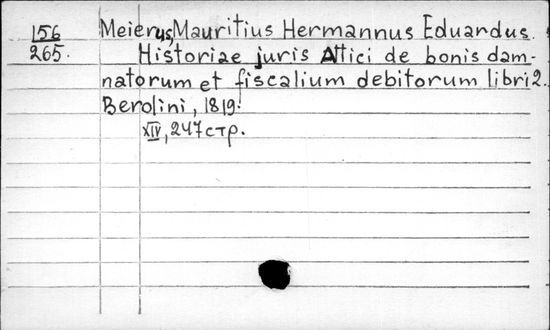 156
265.
Meierus, Mauritius Hermannus Eduardus.
Historiae juris Attici de bonis dam-
natorum et fiscalium debitorum libri 2.
Berolini, 1819.
XIV, 247 стр.